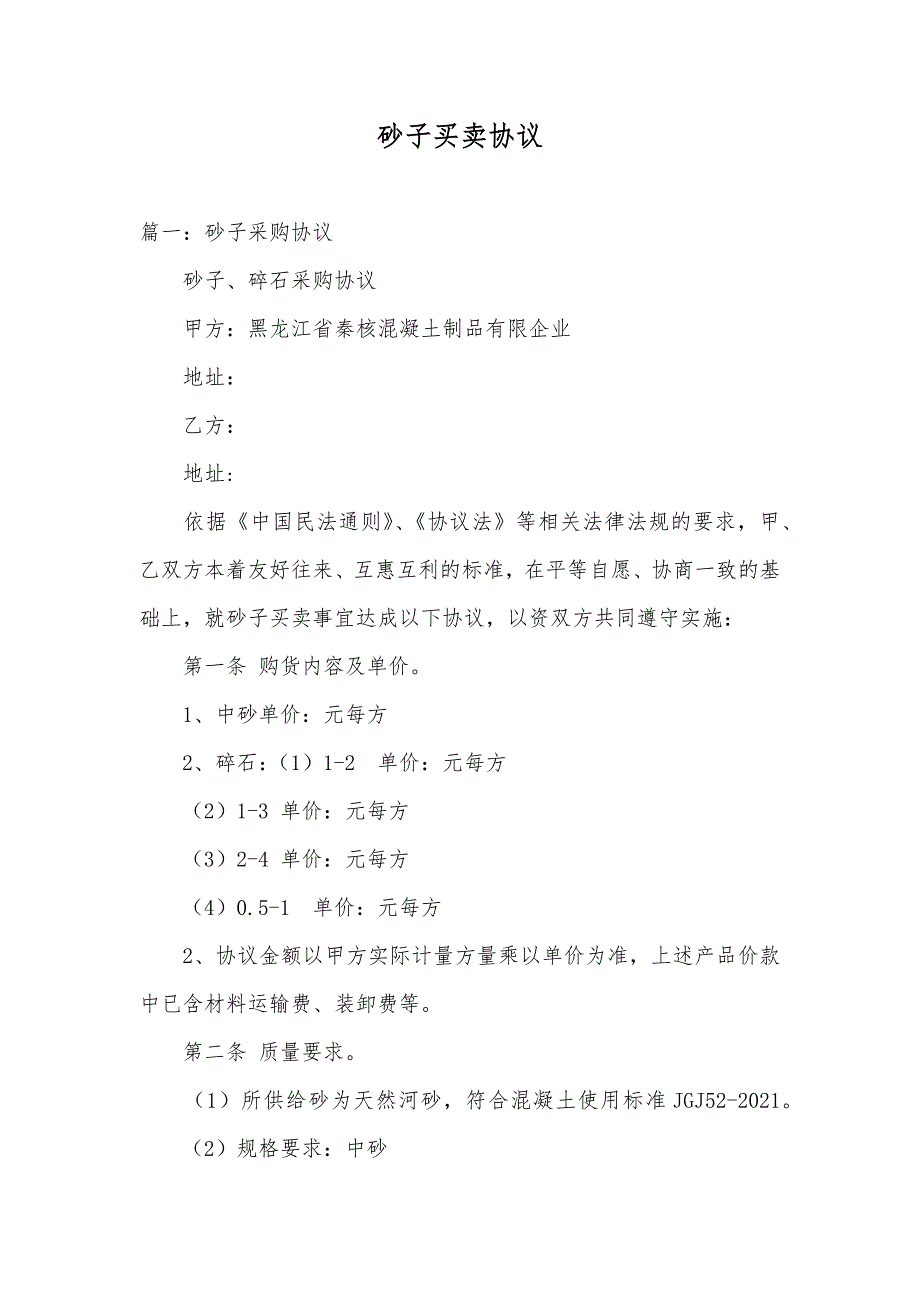 砂子买卖协议
篇一：砂子采购协议
砂子、碎石采购协议
甲方：黑龙江省秦核混凝土制品有限企业
地址：
乙方：
地址:
依据《中国民法通则》、《协议法》等相关法律法规的要求，甲、
乙双方本着友好往来、互惠互利的标准，在平等自愿、协商一致的基
础上，就砂子买卖事宜达成以下协议，以资双方共同遵守实施：
第一条 购货内容及单价。
1、中砂单价：元每方
2、碎石：（1）1-2  单价：元每方
（2）1-3 单价：元每方
（3）2-4 单价：元每方
（4）0.5-1  单价：元每方
2、协议金额以甲方实际计量方量乘以单价为准，上述产品价款
中已含材料运输费、装卸费等。
第二条 质量要求。
（1）所供给砂为天然河砂，符合混凝土使用标准 JGJ52-2021。
（2）规格要求：中砂